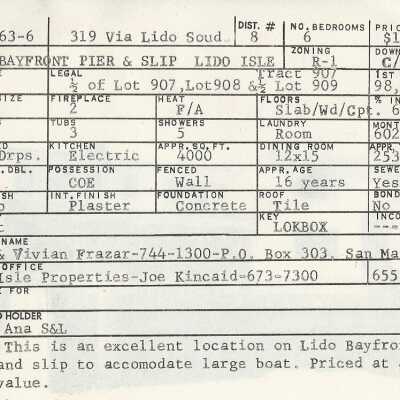 DIST. # NO. BEDROOMS PRIC
63-6 319 Via Lido Soud 8 6 $1
ZONING DOWN
BAYFRONT PIER & SLIP LIDO ISLE R-1 C/
LEGAL Tract 907 1st
½ of Lot 907,Lot908 &½ Lot 909 98,
SIZE FIREPLACE HEAT FLOORS % IN
2 F/A Slab/Wd/Cpt. 6
TUBS SHOWERS LAUNDRY MONT
3 5 Room 602
KITCHEN APPR.SQ.FT. DINING ROOM APPR
Drps. Electric 4000 12x15 253
.DBL. POSSESSION FENCED APPR.AGE SEWE
COE Wall 16 years Yes
SH INT.FINISH FOUNDATION ROOF BOND
Plaster Concrete Tile No
KEY INCO
LOKBOX --
NAME
& Vivian Frazar-744-1300-P.O. Box 303, San Ma
OFFICE
Isle Properties-Joe Kincaid-673-7300 655
E FOR
D HOLDER
Ana S&L
This is an excellent location on Lido Bayfron
and slip to accomodate large boat. Priced at
value.